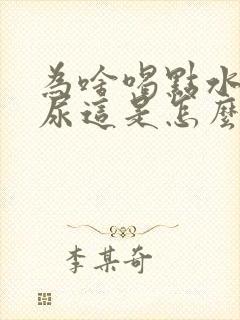 為啥喝點水
尿這是怎麼
李某奇